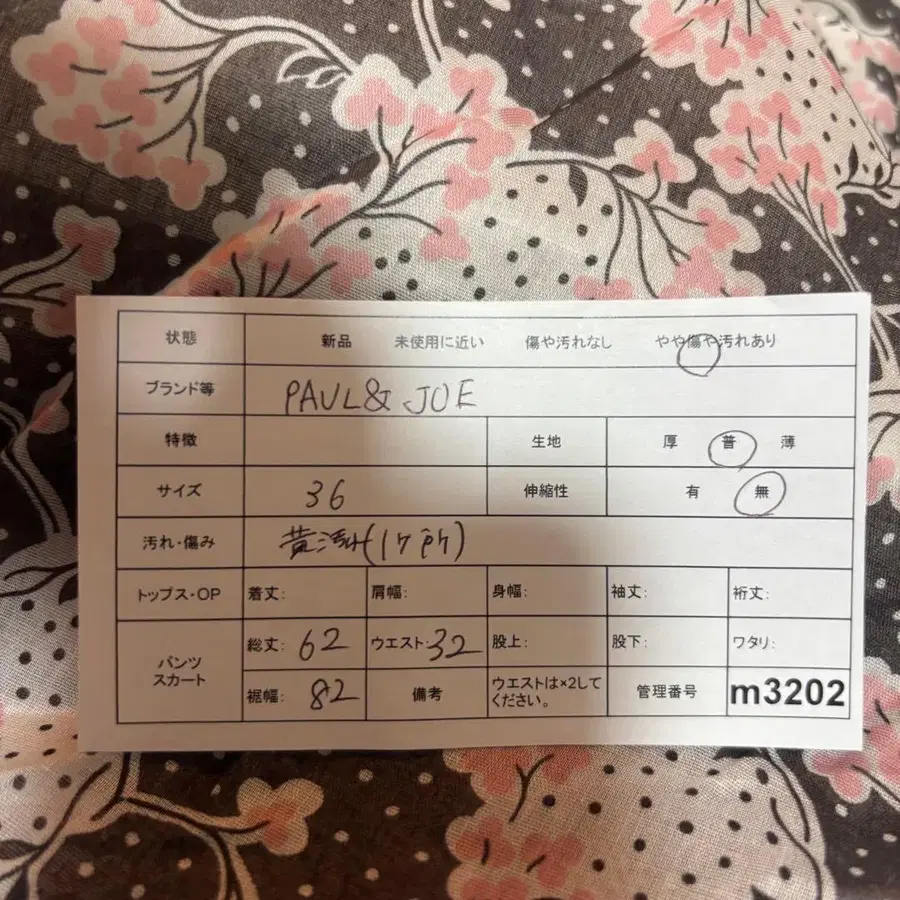 状態 新品 未使用に近い 傷や汚れなし やや傷や汚れあり
ブランド等 PAUL & JOE
特徴 生地 厚 普 薄
サイズ 36 伸縮性 有 無
汚れ・傷み 黄汚れ(1ヶ所)
トップス・OP 着丈: 肩幅: 身幅: 袖丈: 裄丈:
パンツ
スカート
総丈: 62 ウエスト: 32 股上: 股下: ワタリ:
裾幅: 82 備考 ウエストは×2して
ください。
管理番号 m3202